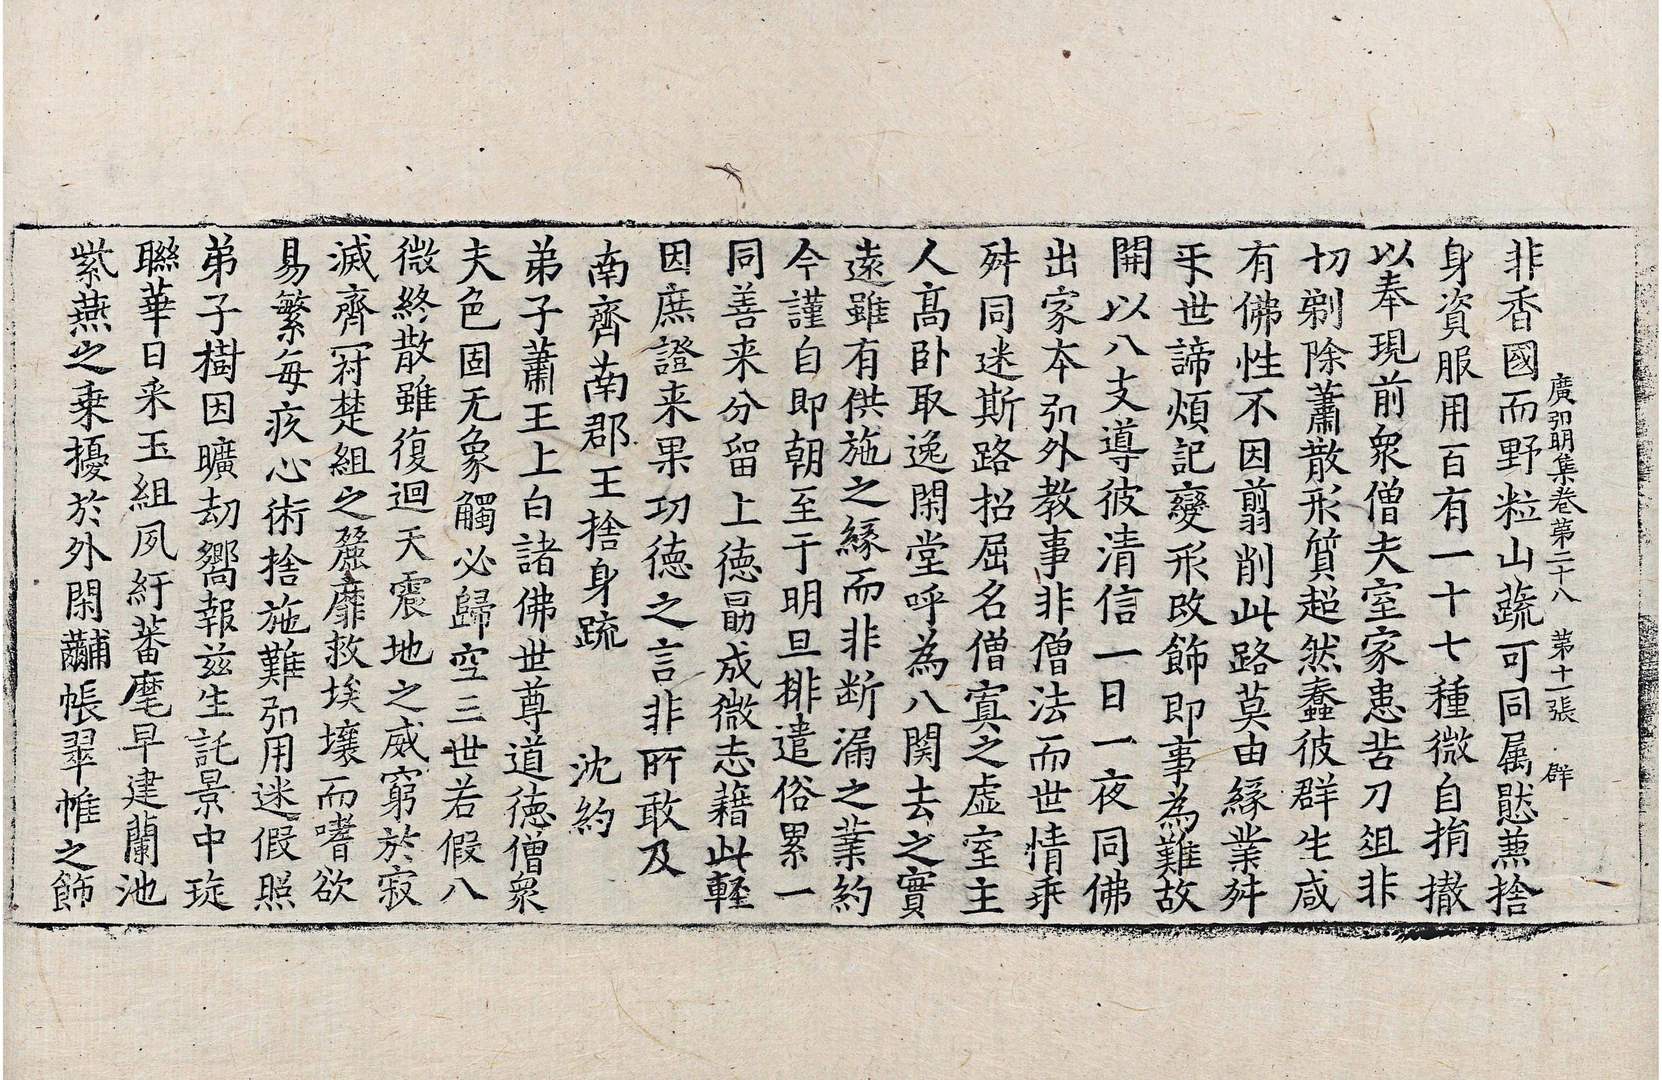 非香國而野粒山蔬可同属懸兼捨
廣弘明集卷第二十八 第十一張 群
身資服用百有一十七種微自捎撤
以奉現前衆僧夫室家患苦刀俎非
切剃除蕭散形質超然蠢彼群生咸
有佛性不因翦削此路莫由緣業舛
互世諦煩記變形改飾即事為難故
開以八支導彼清信一日一夜同佛
出家本弘外教事非僧法而世情乖
舛同迷斯路招屈名僧寘之虛室主
人高卧取逸閑堂呼為八関去之實
遠雖有供施之緣而非断漏之業約
今謹自即朝至于明旦排遣俗累一
同善来分留上徳勗成微志藉此輕
因庶證来果功徳之言非所敢及
南齊南郡王捨身疏 沈約
弟子蕭王上白諸佛世尊道德僧衆
夫色固无象觸必歸空三世若假八
微終散雖復迴天震地之威窮於寂
滅齊冠楚組之麗靡救埃壤而嗜欲
易繁每疚心術捨施難弘用迷假照
弟子樹因曠劫嚮報兹生託景中琁
聯華日采玉組夙紆蕃麾早建蘭池
紫燕之乗擾於外閑黼帳翠帷之飾